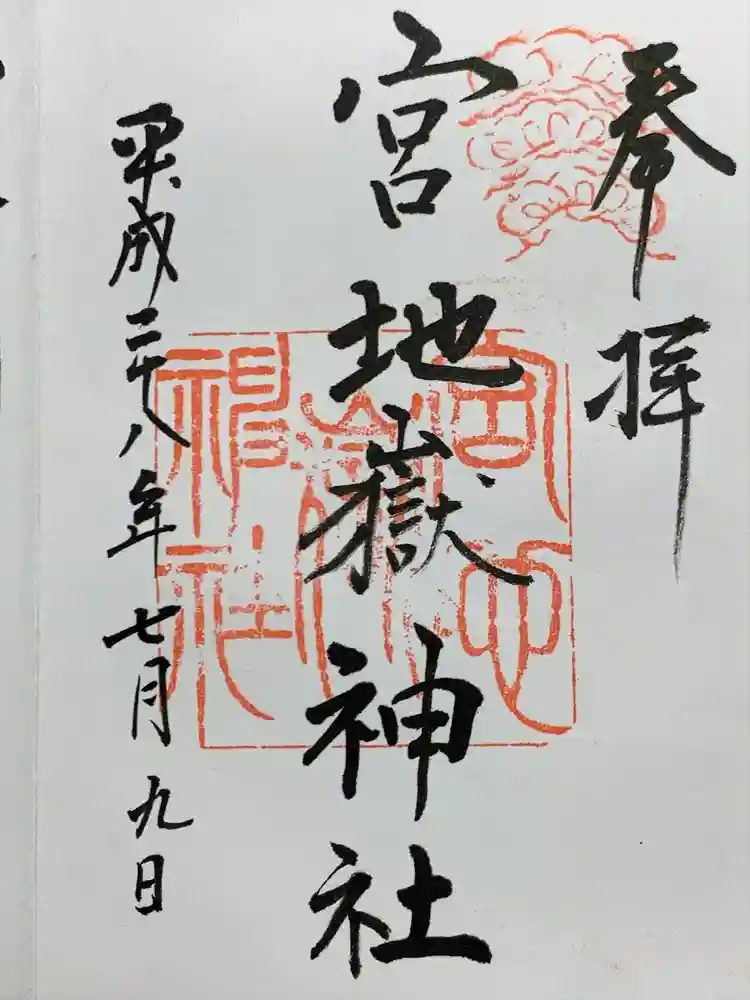 奉拝
宮地嶽神社
平成二十八年七月九日
宮地嶽神社